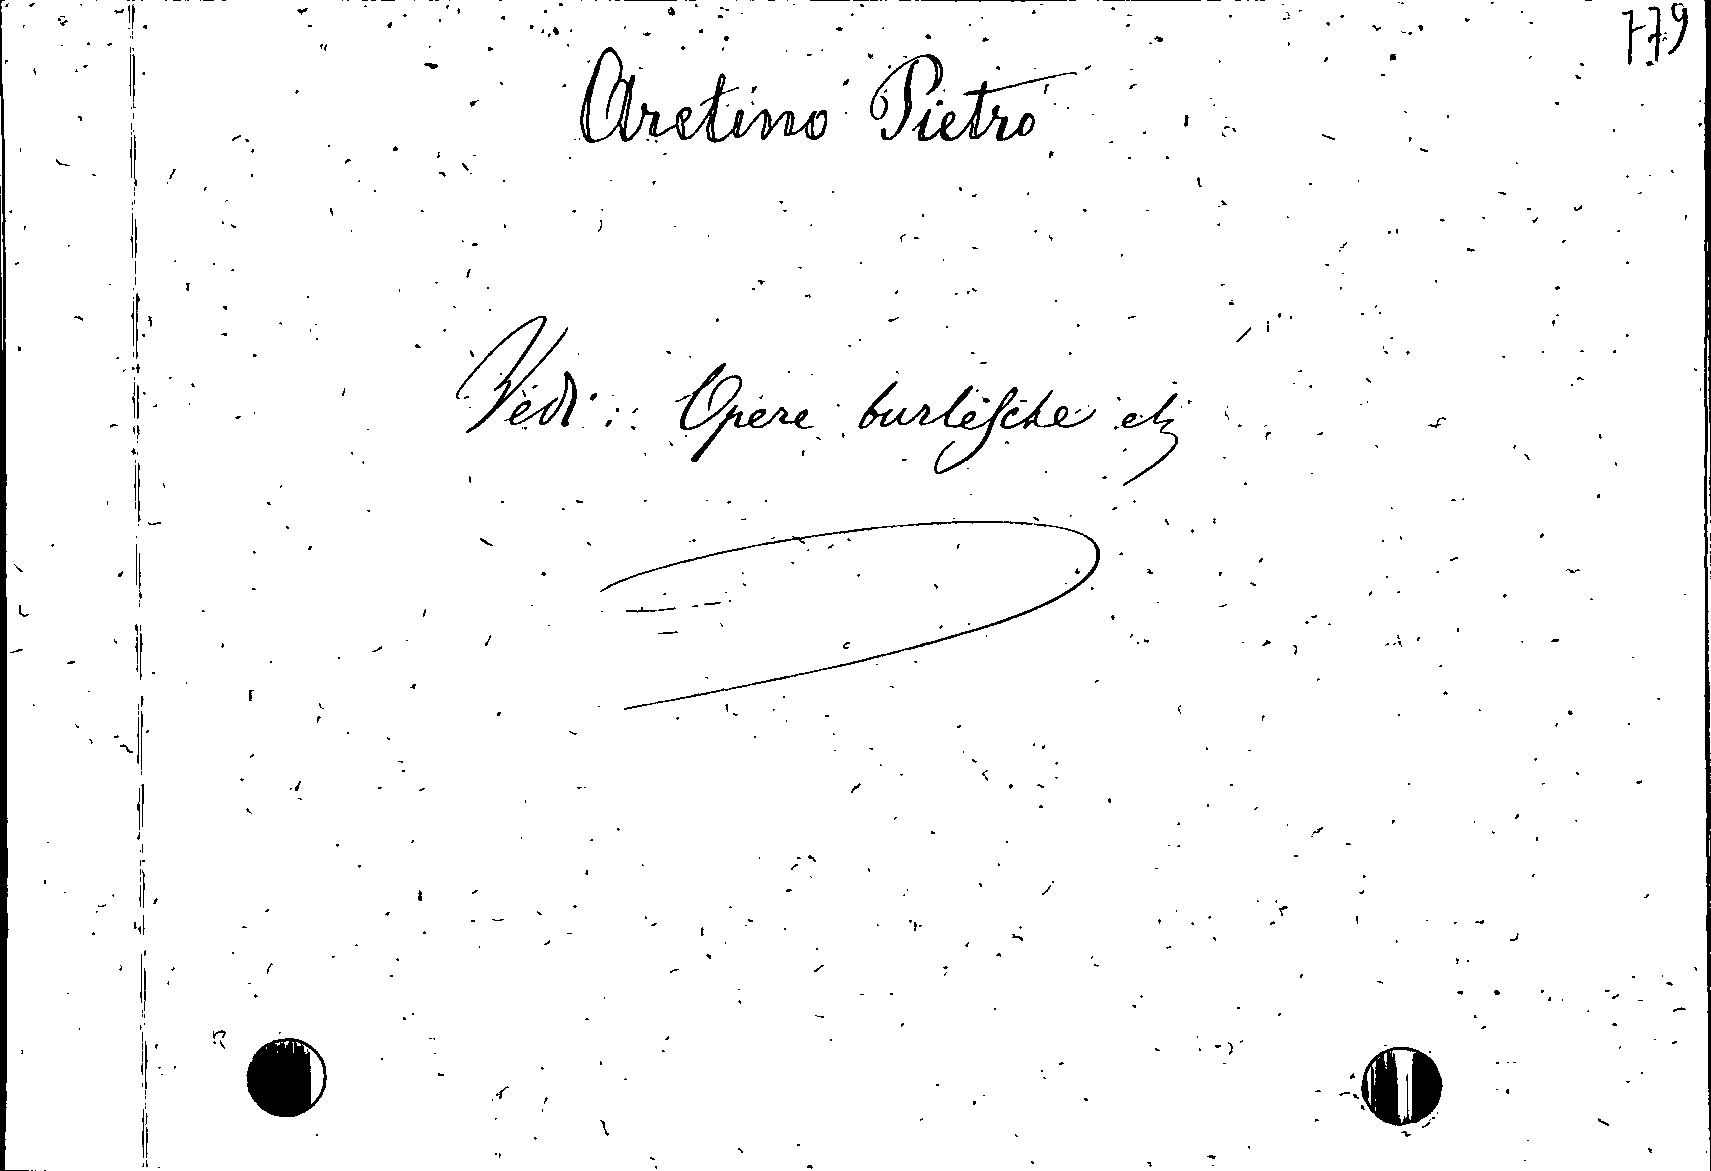 779
Aretino Pietro
Vedi: Opere burlesche etc